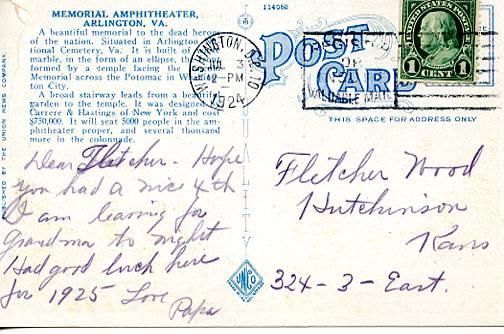 114053
MEMORIAL AMPHITHEATER,
ARLINGTON, VA.
A beautiful memorial to the dead heroes
of the nation. Situated in Arlington
tional Cemetery, Va. It is built of
marble, in the form of an ellipse,
formed by a temple facing the
Memorial across the Potomac in
ton City.
A broad stairway leads from a beautiful
garden to the temple. It was designed
Carrere & Hastings of New York and cost
$750,000. It will seat 5000 people in the am-
phitheater proper, and several thousand
more in the colonnade.
PUBLISHED BY THE UNION NEWS COMPANY.
WASHINGTON, D.C.
JUL 3
12-PM
1924
POST
CARD
VALUABLE MAIL
UNITED STATES POSTAGE
1 CENT 1
THIS SPACE FOR ADDRESS ONLY
Dear Fletcher - Hope
you had a nice 4th
I am leaving for
Grandma to night
Had good luck here
for 1925 Love
Papa
UNCO
Fletcher Wood
Hutchinson
Kans
324-3-East.